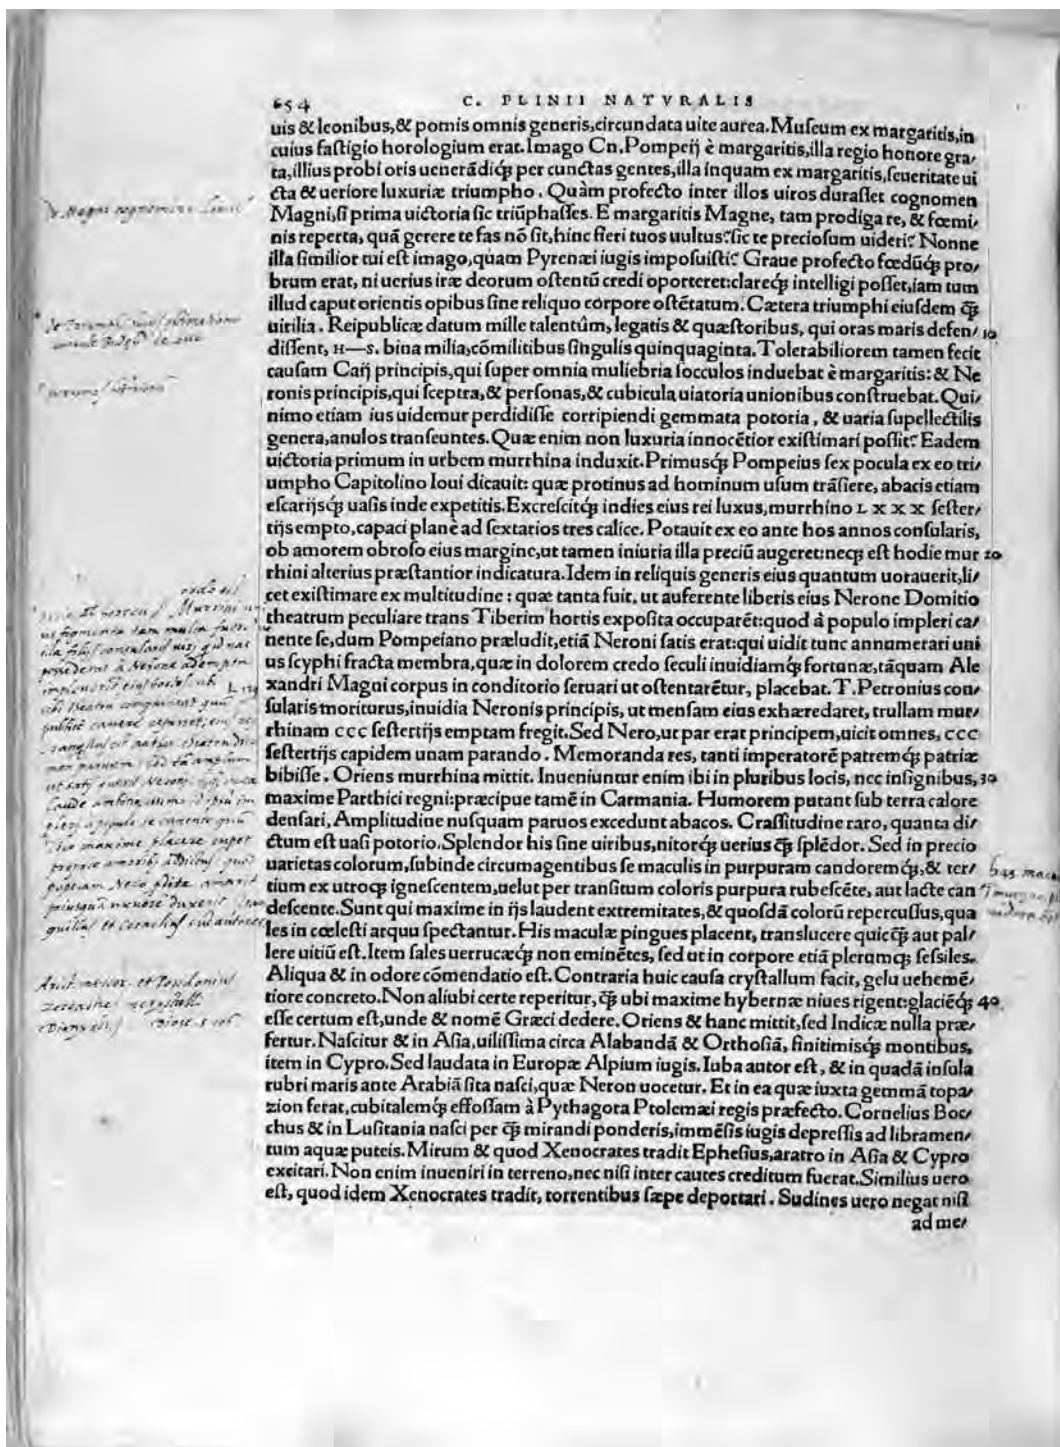 654 C. PLINII NATVRALIS
uis & leonibus,& pomis omnis generis,circundata uite aurea.Muſeum ex margaritis,in
cuius faſtigio horologium erat.Imago Cn.Pompeij è margaritis,illa regio honore gra/
ta,illius probi oris uenerādiq́ʒ per cunctas gentes,illa inquam ex margaritis,ſeueritate ui
cta & ueriore luxuriæ triumpho. Quàm profecto inter illos uiros duraſſet cognomen
Magni,ſi prima uictoria ſic triūphaſſes. E margaritis Magne, tam prodiga re, & fœmi/
nis reperta, quā gerere te fas nō ſit,hinc fieri tuos uultus?ſic te precioſum uideri? Nonne
illa ſimilior tui eſt imago,quam Pyrenæi iugis impoſuiſti? Graue profecto fœdūq́ʒ pro/
brum erat, ni uerius iræ deorum oſtentū credi oporteret:clareq́ʒ intelligi poſſet,iam tum
illud caput orientis opibus ſine reliquo corpore oſtētatum. Cætera triumphi eiuſdem q̄ʒ
uirilia. Reipublicæ datum mille talentûm, legatis & quæſtoribus, qui oras maris defen/ 10
diſſent, H—S. bina milia,cōmilitibus ſingulis quinquaginta.Tolerabiliorem tamen fecit
cauſam Caij principis,qui ſuper omnia muliebria ſocculos induebat è margaritis:& Ne
ronis principis,qui ſceptra,& perſonas,& cubicula uiatoria unionibus conſtruebat. Qui/
nimo etiam ius uidemur perdidiſſe corripiendi gemmata potoria, & uaria ſupellectilis
genera,anulos tranſeuntes. Quæ enim non luxuria innocētior exiſtimari poſſit? Eadem
uictoria primum in urbem murrhina induxit.Primusq́ʒ Pompeius ſex pocula ex eo tri/
umpho Capitolino Ioui dicauit: quæ protinus ad hominum uſum trāſiere, abacis etiam
eſcarijsq́ʒ uaſis inde expetitis.Excreſcitq́ʒ indies eius rei luxus,murrhino L X X X ſeſter/
tijs empto,capaci planè ad ſextarios tres calice. Potauit ex eo ante hos annos conſularis,
ob amorem obroſo eius margine,ut tamen iniuria illa preciū augeret:neq́ʒ eſt hodie mur 20
rhini alterius præſtantior indicatura.Idem in reliquis generis eius quantum uorauerit,li/
cet exiſtimare ex multitudine: quæ tanta fuit, ut auferente liberis eius Nerone Domitio
theatrum peculiare trans Tiberim hortis expoſita occuparēt:quod à populo impleri ca/
nente ſe,dum Pompeiano præludit,etiā Neroni ſatis erat:qui uidit tunc annumerari uni
us ſcyphi fracta membra,quæ in dolorem credo ſeculi inuidiamq́ʒ fortunæ,tāquam Ale
xandri Magni corpus in conditorio ſeruari ut oſtentarētur, placebat. T.Petronius con/
ſularis moriturus,inuidia Neronis principis, ut menſam eius exhæredaret, trullam mur/
rhinam CCC ſeſtertijs emptam fregit.Sed Nero,ut par erat principem,uicit omnes, CCC
ſeſtertijs capidem unam parando. Memoranda res, tanti imperatorē patremq́ʒ patriæ
bibiſſe. Oriens murrhina mittit. Inueniuntur enim ibi in pluribus locis, nec inſignibus, 30
maxime Parthici regni:præcipue tamē in Carmania. Humorem putant ſub terra calore
denſari, Amplitudine nuſquam paruos excedunt abacos. Craſſitudine raro, quanta di/
ctum eſt uaſi potorio. Splendor his ſine uiribus,nitorq́ʒ uerius q̄ʒ ſplēdor. Sed in precio
uarietas colorum,ſubinde circumagentibus ſe maculis in purpuram candoremq́ʒ,& ter/
tium ex utroq́ʒ igneſcentem,uelut per tranſitum coloris purpura rubeſcēte, aut lacte can
deſcente.Sunt qui maxime in ijs laudent extremitates,& quoſdā colorū repercuſſus,qua
les in cœleſti arquu ſpectantur. His maculæ pingues placent, translucere quicq̄ʒ aut pal/
lere uitiū eſt. Item ſales uerrucæq́ʒ non eminētes, ſed ut in corpore etiā plerumq́ʒ ſeſsiles.
Aliqua & in odore cōmendatio eſt. Contraria huic cauſa cryſtallum facit, gelu uehemē/
tiore concreto. Non aliubi certe reperitur, q̄ʒ ubi maxime hybernæ niues rigent:glaciēq́ʒ 40
eſſe certum eſt,unde & nomē Græci dedere. Oriens & hanc mittit,ſed Indicæ nulla præ/
fertur. Naſcitur & in Aſia,uiliſſima circa Alabandā & Orthoſiā, finitimisq́ʒ montibus,
item in Cypro. Sed laudata in Europæ Alpium iugis. Iuba autor eſt, & in quadā inſula
rubri maris ante Arabiā ſita naſci,quæ Neron uocetur. Et in ea quæ iuxta gemmā topa/
zion ferat,cubitalemq́ʒ effoſſam à Pythagora Ptolemæi regis præfecto. Cornelius Boc/
chus & in Luſitania naſci per q̄ʒ mirandi ponderis,immēſis iugis depreſſis ad libramen/
tum aquæ puteis. Mirum & quod Xenocrates tradit Epheſius,aratro in Aſia & Cypro
excitari. Non enim inueniri in terreno,nec niſi inter cautes creditum fuerat.Similius uero
eſt, quod idem Xenocrates tradit, torrentibus ſæpe deportari. Sudines uero negat niſi
ad me/